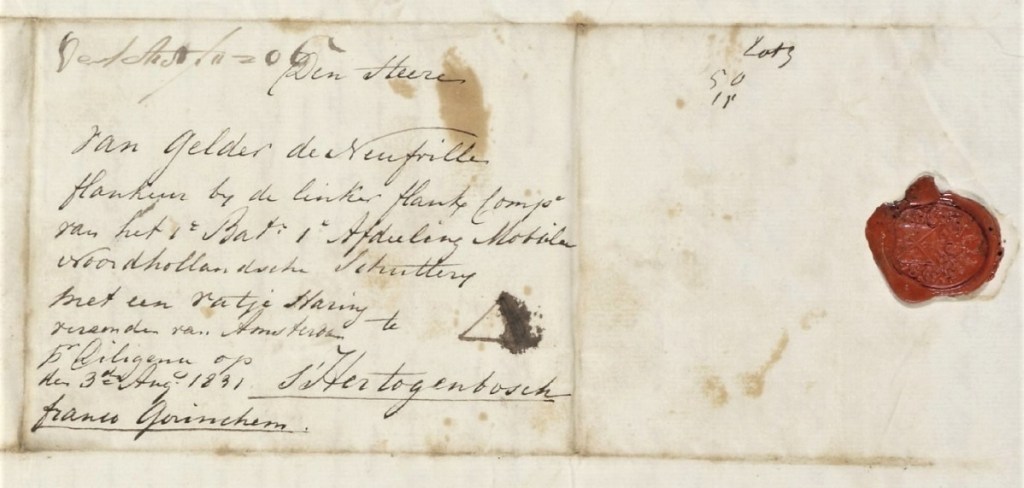 Den Heere
van Gelder de Neufville
flankeur by de linker flank Compe
van het 1e Batn 1e Afdeeling Mobile
Noordhollandsche Schuttery
met een vatje Haring
verzonden van Amsterdam te
pr Diligence op
den 3den Aug. 1831 s'Hertogenbosch
franco Gorinchem.
50